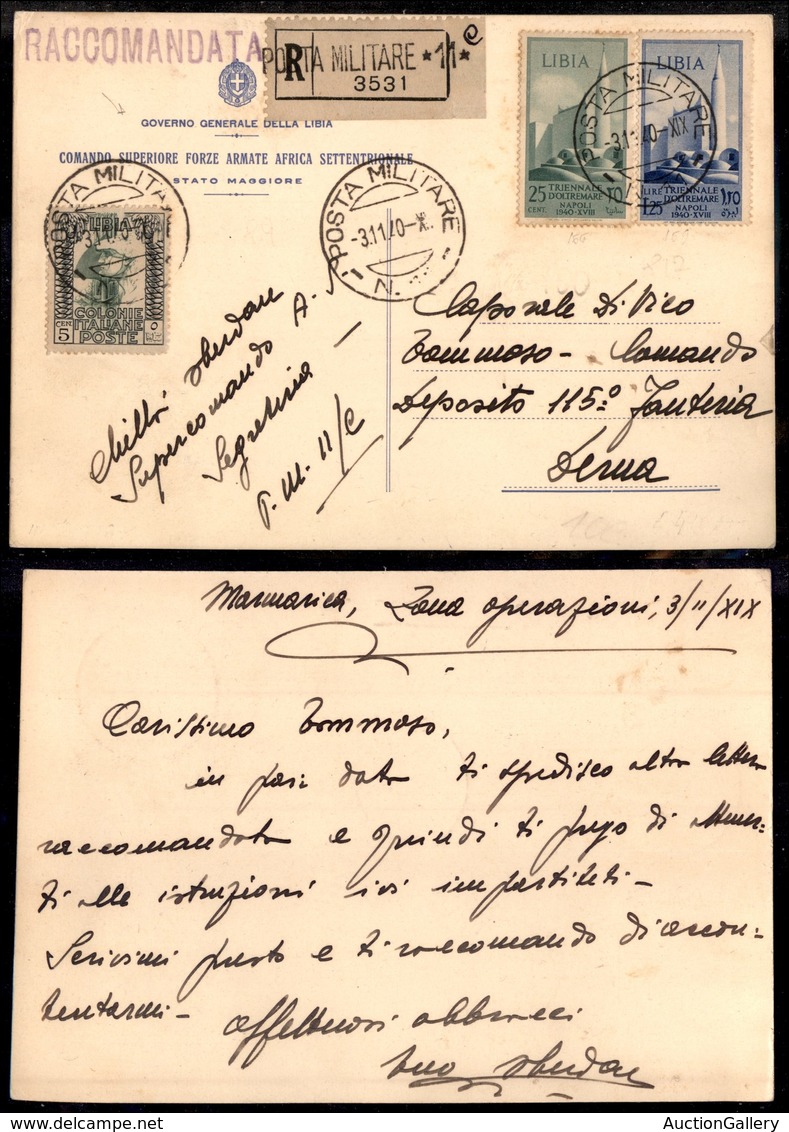 RACCOMANDATA
R POSTA MILITARE *11* C
3531
GOVERNO GENERALE DELLA LIBIA
COMANDO SUPERIORE FORZE ARMATE AFRICA SETTENTRIONALE
STATO MAGGIORE
LIBIA
25 CENT.
TRIENNALE
D'OLTREMARE
NAPOLI
1940-XVIII
LIBIA
LIRE 1,25
TRIENNALE
D'OLTREMARE
NAPOLI
1940-XVIII
POSTA MILITARE
-3.11.40-XIX
POSTA MILITARE
-3.11.40-X
N.
POSTA MILITARE
LIBIA
COLONIE
CEN 5 ITALIANE
POSTE
Oberdan
Supercomando A.S.
Segreteria -
P.M. 11/C
Caporale Di Vico
Tommaso - Comando
Deposito 115º Fanteria
Derna
Marmarica, Zona operazioni, 3/11/XIX
Carissimo Tommaso,
in pari data ti spedisco altra lettera
raccomandata e quindi ti prego di attener=
ti alle istruzioni ivi impartiteti -
Scrivimi presto e ti raccomando di accon=
tentarmi - affettuosi abbracci
tuo Oberdan
AuctionGallery